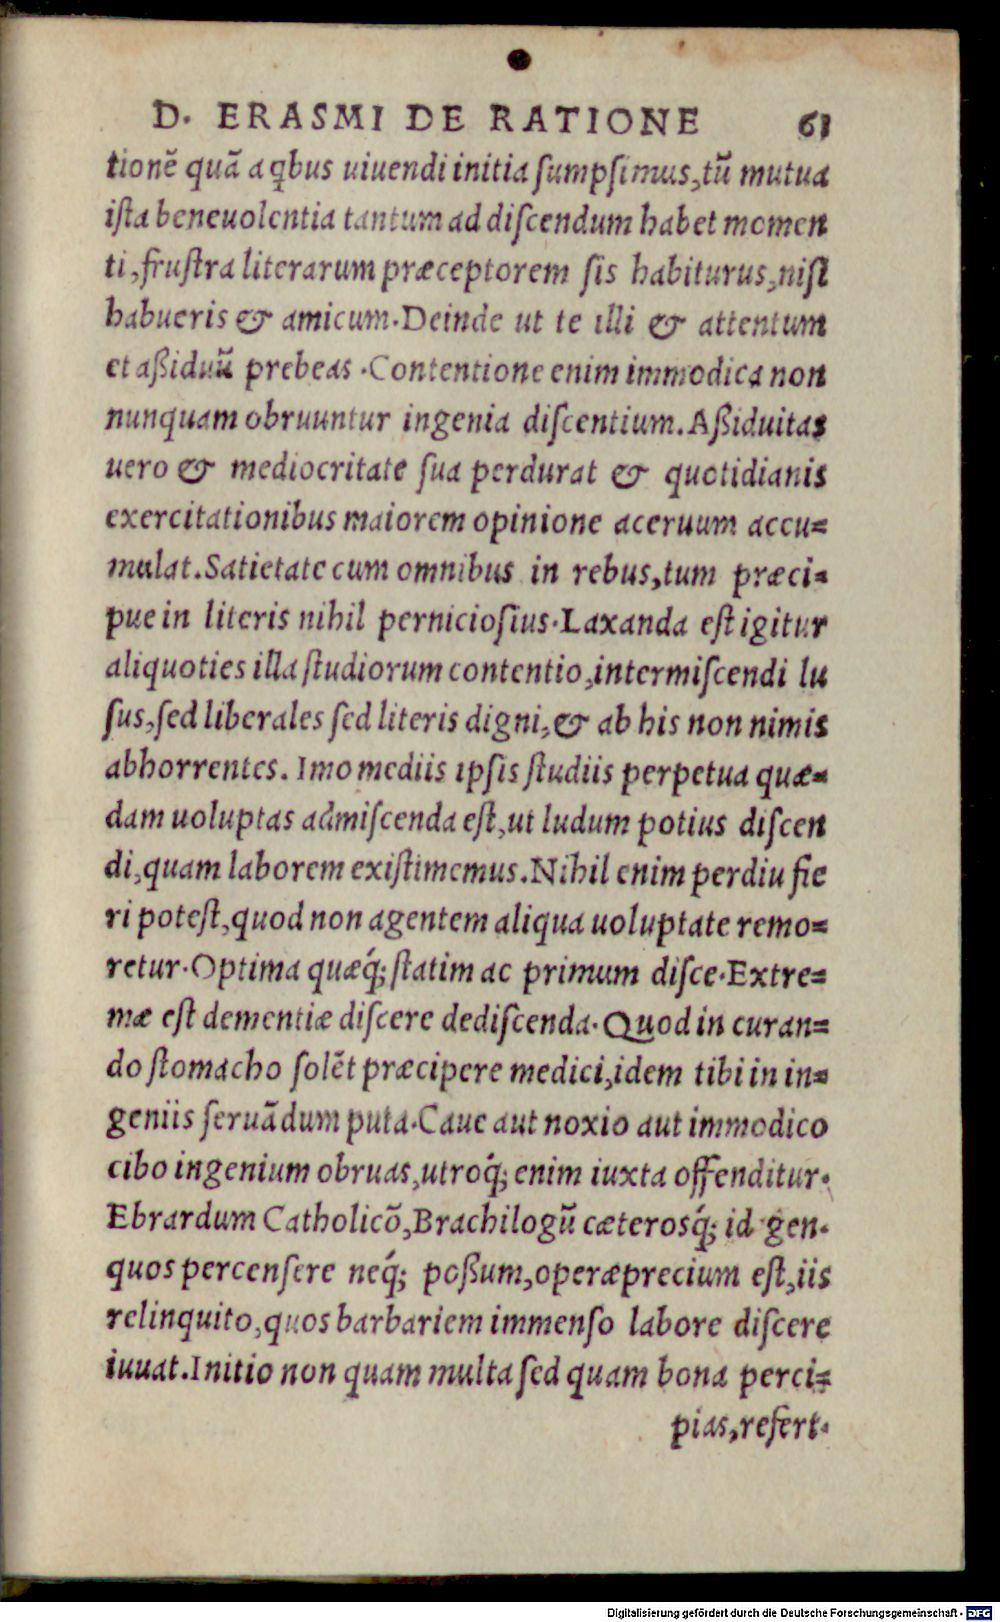 D. ERASMI DE RATIONE 61
tionē quā a qbus uiuendi initia ſumpſimus, tū mutua
iſta beneuolentia tantum ad diſcendum habet momen
ti, fruſtra literarum præceptorem ſis habiturus, niſi
habueris & amicum. Deinde ut te illi & attentum
et aßiduū prebeas. Contentione enim immodica non
nunquam obruuntur ingenia diſcentium. Aßiduitas
uero & mediocritate ſua perdurat & quotidianis
exercitationibus maiorem opinione aceruum accu=
mulat. Satietate cum omnibus in rebus, tum præci=
pue in literis nihil pernicioſius. Laxanda eſt igitur
aliquoties illa ſtudiorum contentio, intermiſcendi lu
ſus, ſed liberales ſed literis digni, & ab his non nimis
abhorrentes. Imo mediis ipſis ſtudiis perpetua quæ=
dam uoluptas admiſcenda eſt, ut ludum potius diſcen
di, quam laborem exiſtimemus. Nihil enim perdiu fie
ri poteſt, quod non agentem aliqua uoluptate remo=
retur. Optima quæq́; ſtatim ac primum diſce. Extre=
mæ eſt dementiæ diſcere dediſcenda. Quod in curan=
do ſtomacho ſolēt præcipere medici, idem tibi in in=
geniis ſeruādum puta. Caue aut noxio aut immodico
cibo ingenium obruas, utroq́; enim iuxta offenditur.
Ebrardum Catholicō, Brachilogū cæterosq́; id gen.
quos percenſere neq́; poßum, operæprecium eſt, iis
relinquito, quos barbariem immenſo labore diſcere
iuuat. Initio non quam multa ſed quam bona perci=
pias, refert.
Digitalisierung gefördert durch die Deutsche Forschungsgemeinschaft - DFG